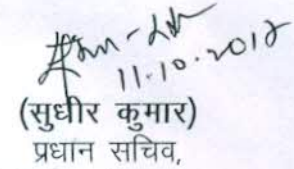 11.10.2017
(सुधीर कुमार)
प्रधान सचिव,